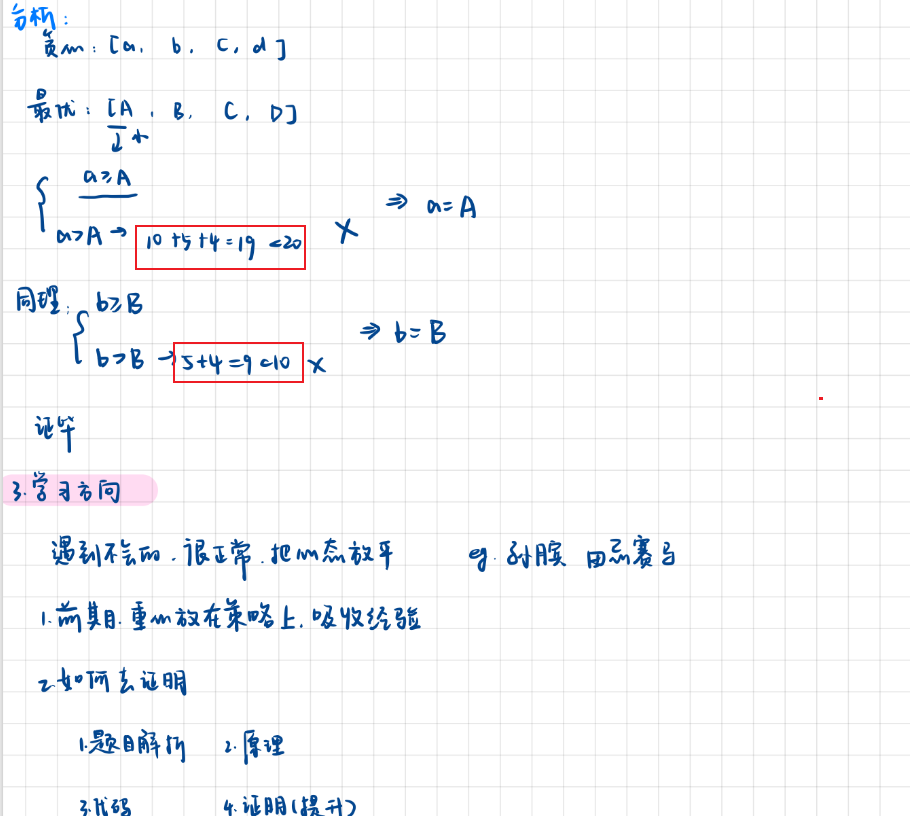 分析：
贪心：[a, b, c, d]
最优：[A, B, C, D]
↓大
{ a≥A
a>A → 10+5+4=19 <20 × ⇒ a=A
同理：{ b≥B
b>B → 5+4=9 <10 × ⇒ b=B
证毕
3.学习方向
遇到不会的，很正常，把心态放平 eg. 孙膑 田忌赛马
1.前期，重心放在策略上，吸收经验
2.如何去证明
1.题目解析 2.原理
3.代码 4.证明(提升)